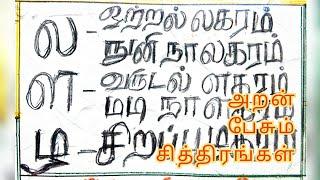 ல - ஒற்றல் லகரம்
நுனி நாலகரம்
ள - வருடல் ளகரம்
மடி நா
ழ - சிறப்பு
அறன்
பேசும்
சித்திரங்கள்